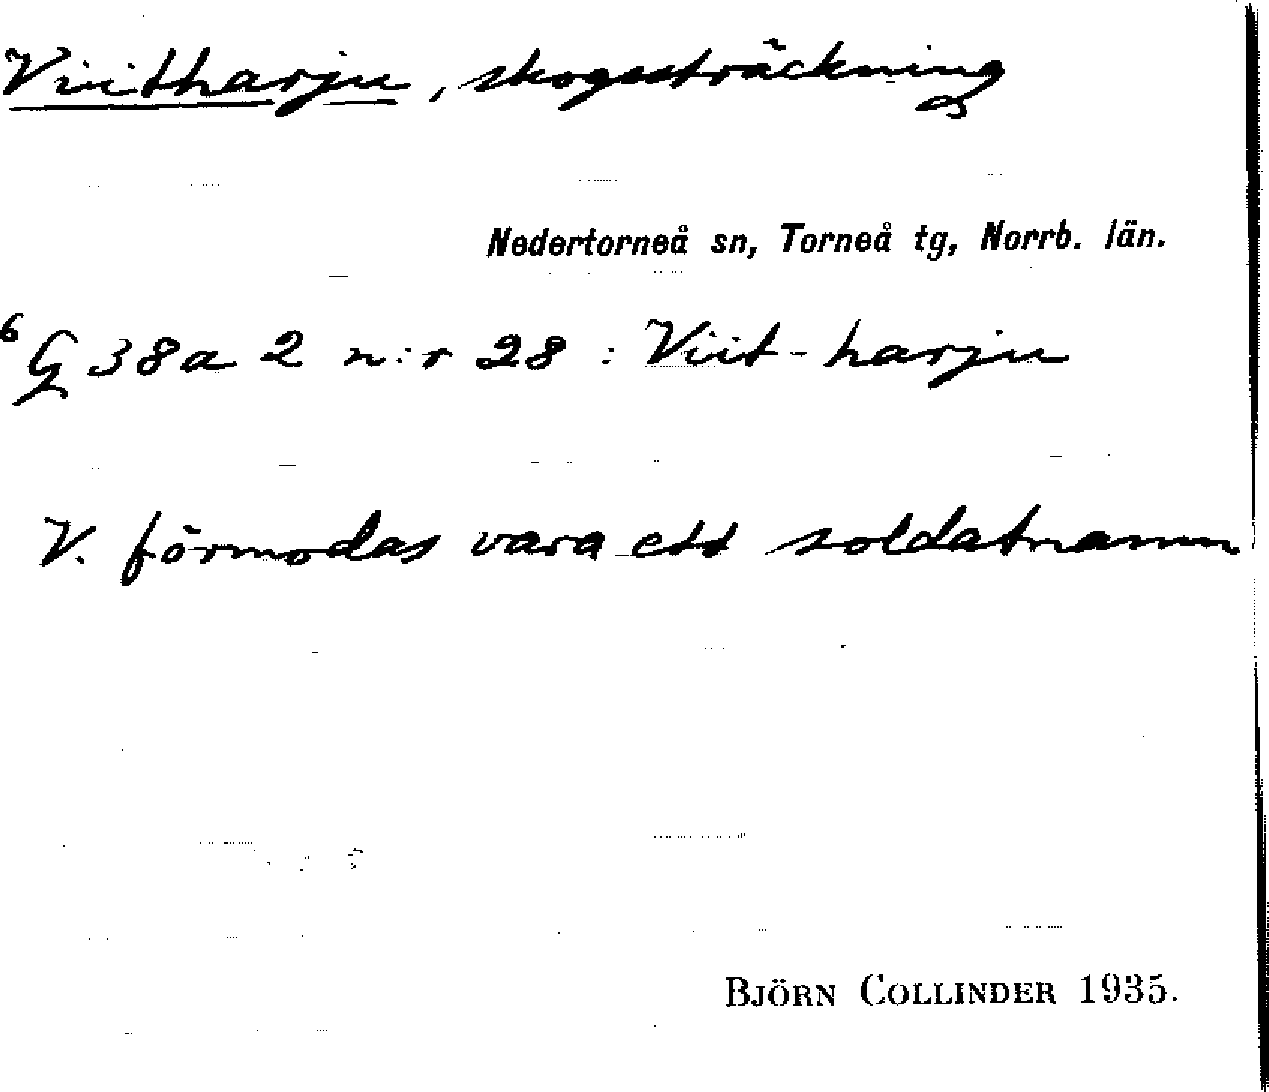 Viitharju, skogssträckning
Nedertorneå sn, Torneå tg, Norrb. län.
6 G 38a 2 n:r 28 : Viit-harju
V. förmodas vara ett soldatnamn
BJÖRN COLLINDER 1935.